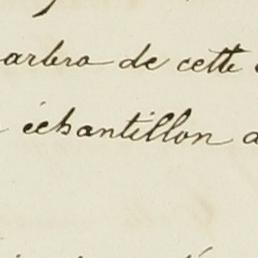 arbro de cette
échantillon